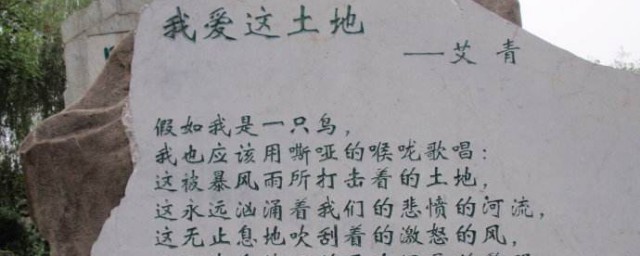 我爱这土地
——艾青
假如我是一只鸟，
我也应该用嘶哑的喉咙歌唱：
这被暴风雨所打击着的土地，
这永远汹涌着我们的悲愤的河流，
这无止息地吹刮着的激怒的风，